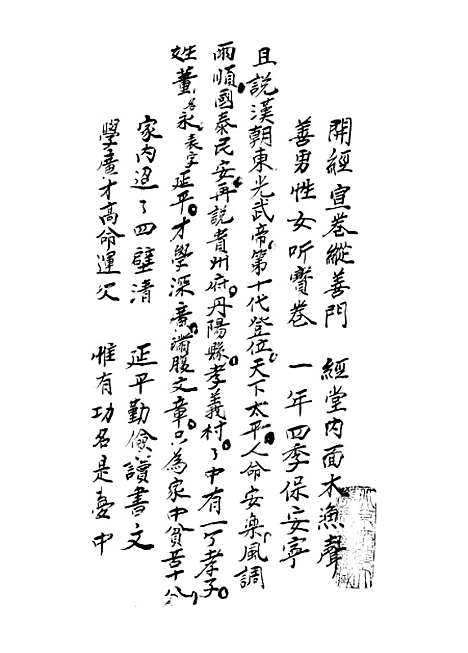 開經宣卷縱善門　經堂內面木漁聲
善男性女听寶卷　一年四季保安寧
且説漢朝東光武帝第十代登位天下太平人命安樂風調
雨順國泰民安再説貴州府丹陽縣孝義村了中有一丁孝子
姓董名永表字延平才學深廣滿腹文章只為家中貧苦十分
家內逞了四壁清　延平勤儉讀書文
學廣才高命運欠　惟有功名是憂中